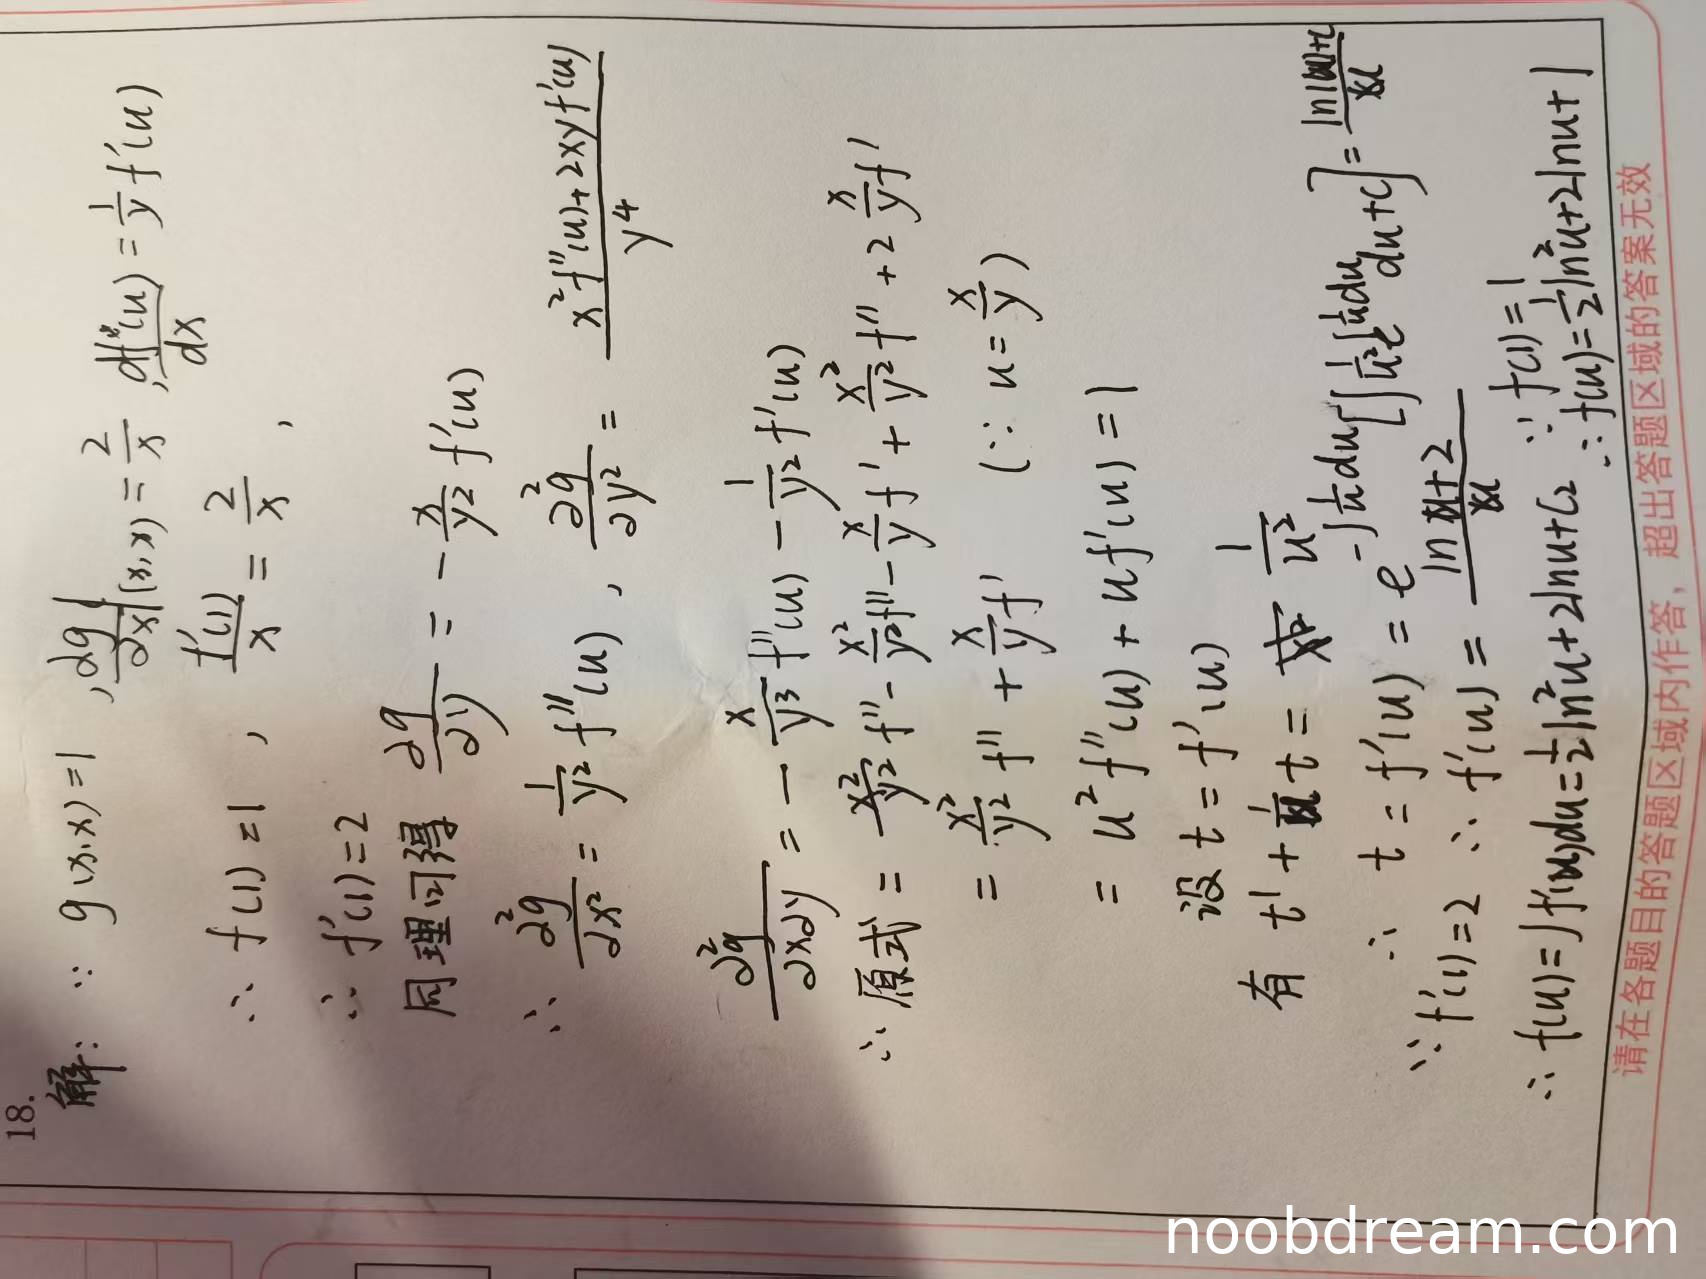 18.
解: ∵ g(x,x)=1 , ∂g/∂x|(x,x) = 2/x , df(u)/dx = 1/y f'(u)
∴ f(1)=1 , f'(1)/x = 2/x ,
∴ f'(1)=2
同理可得 ∂g/∂y = - x/y² f'(u)
∴ ∂²g/∂x² = 1/y² f''(u) , ∂²g/∂y² = (x² f''(u)+2xy f'(u))/y⁴
∂²g/∂x∂y = - x/y³ f''(u) - 1/y² f'(u)
∴ 原式 = x²/y² f'' - x²/y² f'' - x/y f' + x²/y² f'' + 2 x/y f'
= x²/y² f'' + x/y f' (∵ u = x/y)
= u² f''(u) + u f'(u) = 1
设 t = f'(u)
有 t' + 1/u t = 1/u²
∴ t = f'(u) = e^(-∫1/u du) [∫ 1/u² e^(∫1/u du) du + C] = (ln|u|+C)/u
∵ f'(1)=2 ∴ f'(u) = (ln u+2)/u
∴ f(u) = ∫f'(u)du = 1/2 ln²u + 2lnu + C₂ ∵ f(1)=1
∴ f(u) = 1/2 ln²u + 2lnu + 1
请在各题目的答题区域内作答，超出答题区域的答案无效
noobdream.com